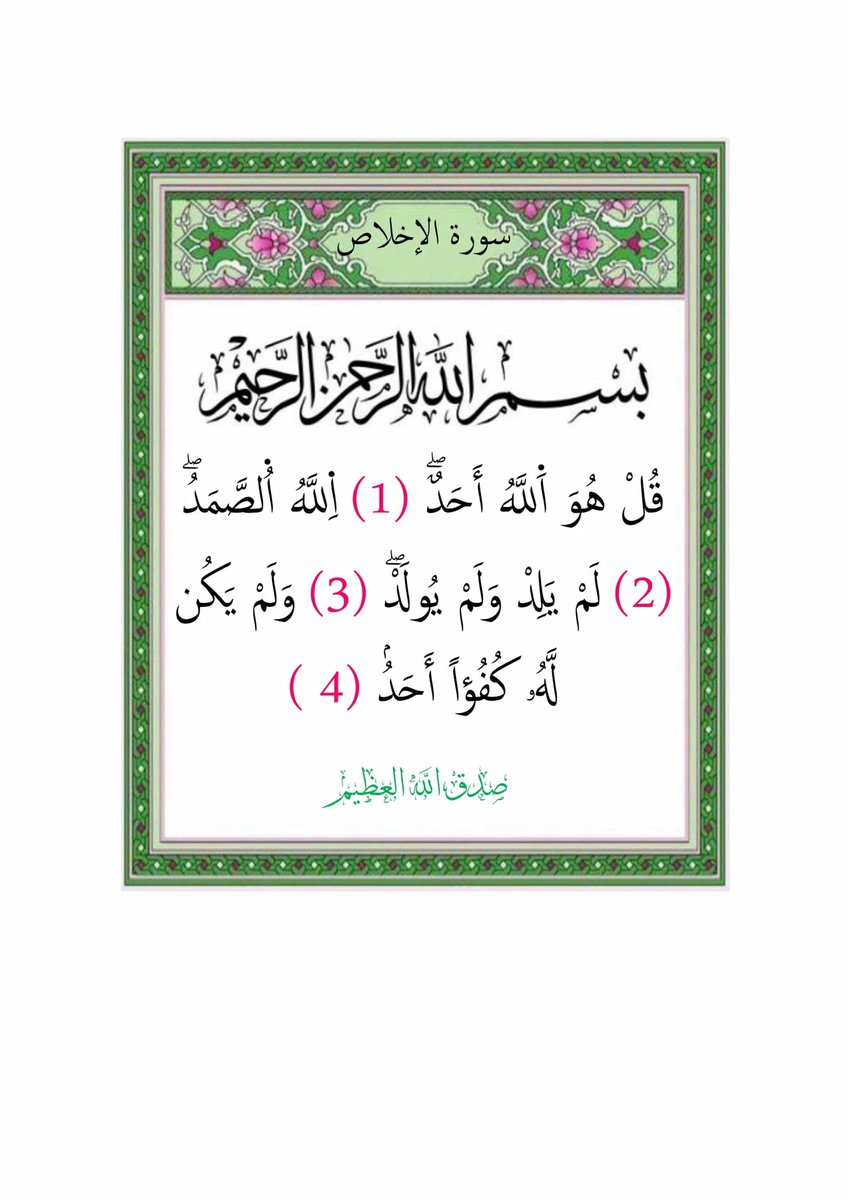 سورة الإخلاص
بسم الله الرحمن الرحيم
قُلْ هُوَ اَ۬للَّهُ أَحَدٌۖ (1) اِ۬للَّهُ اُ۬لصَّمَدُۖ
(2) لَمْ يَلِدْ وَلَمْ يُولَدْۖ (3) وَلَمْ يَكُن
لَّهُۥ كُفُؤاً أَحَدُۢ (4 )
صدق الله العظيم